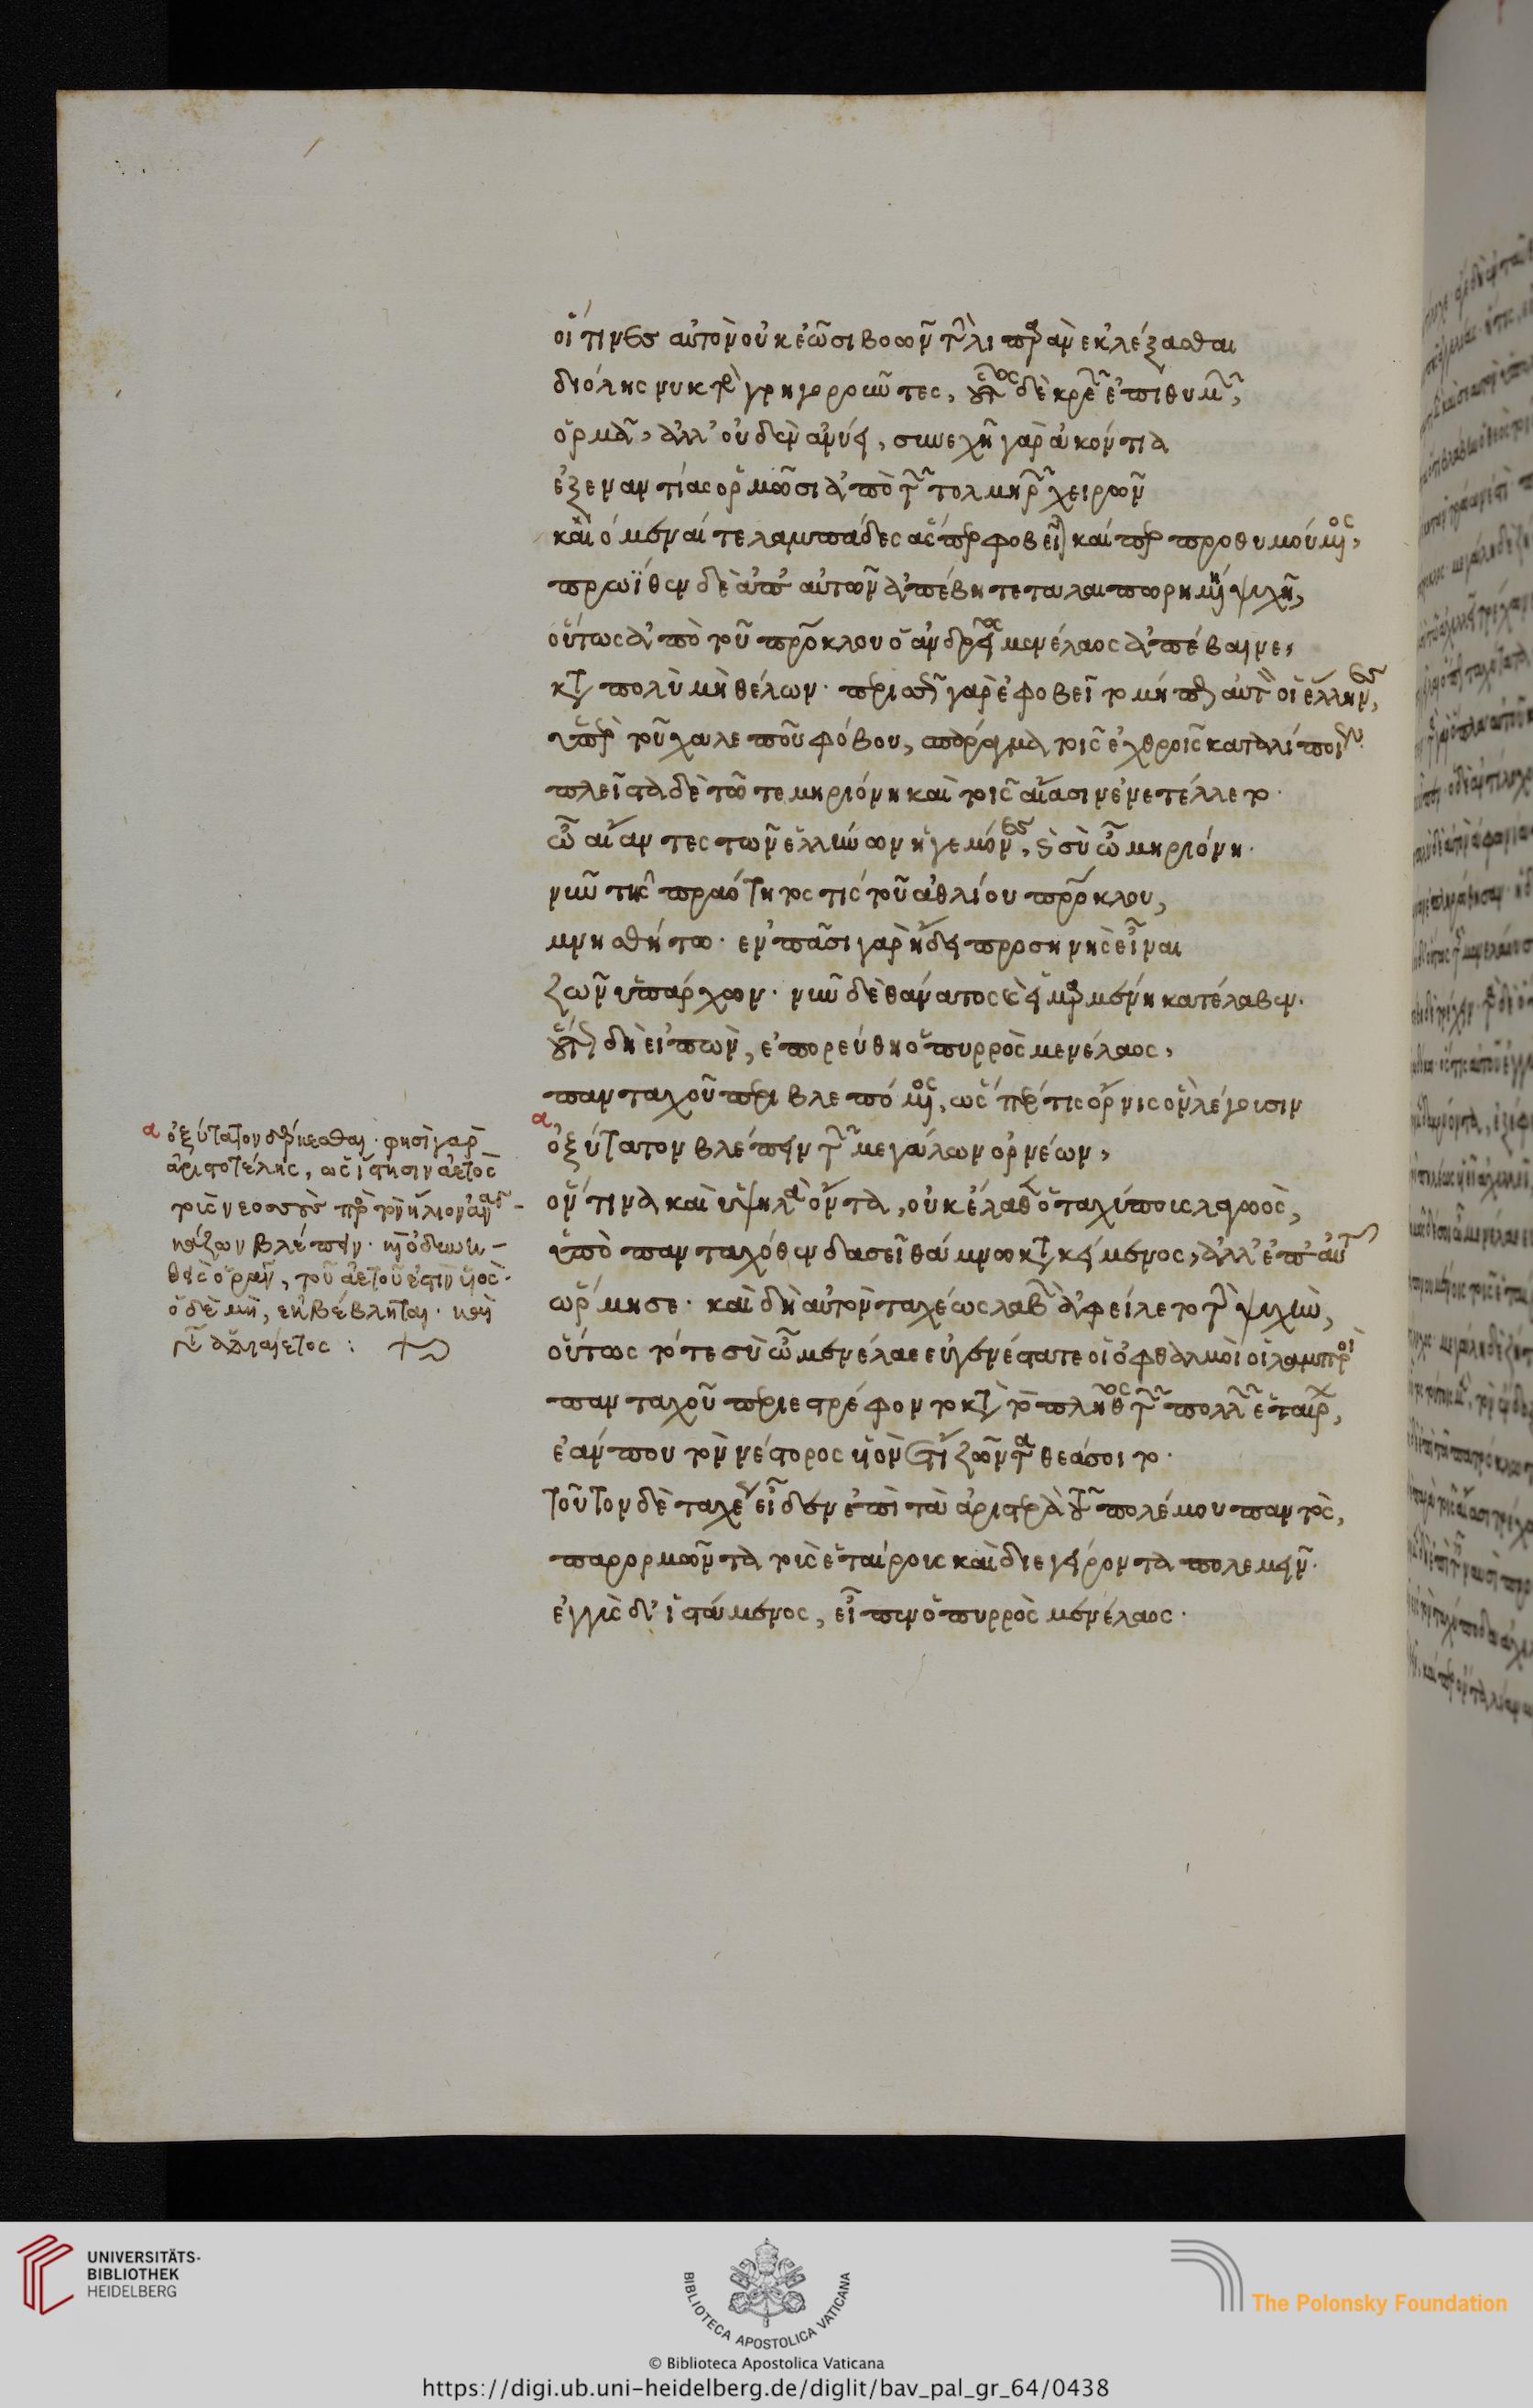 οἵτινες αὐτὸν οὐκ ἐῶσι βοῶν τὴν λιπαρὰν ἐκλέξασθαι
δι' ὅλης νυκτὸς γρηγοροῦντες, οὗτος δὲ κρεῶν ἐπιθυμῶν,
ὁρμᾶ, ἀλλ' οὐδὲν ἀνύει, συνεχῆ γὰρ ἀκόντια
ἐξεναντίας ὁρμῶσι ἀπὸ τῶν τολμηρῶν χειρῶν
καιόμεναί τε λαμπάδες ἅσπερ φοβεῖται καίπερ προθυμούμενος,
πρωΐθεν δὲ ἀπ' αὐτῶν ἀπέβη τεταλαιπωρημένη ψυχῆ,
οὕτως ἀπὸ τοῦ πατρόκλου ὁ ἀνδρεῖος μενέλαος ἀπέβαινε,
καὶ πολὺ μὴ θέλων· περισσῶς γὰρ ἐφοβεῖτο μήπως αὐτὸν οἱ ἕλληνες,
ὑπὲρ τοῦ χαλεποῦ φόβου, σπάραγμα τοῖς ἐχθροῖς καταλίποιεν.
πλεῖστα δὲ τῶ τε μηριόνη καὶ τοῖς αἴασιν ἐνετέλλετο·
ὦ αἴαντες τῶν ἑλλήνων ἡγεμόνες, καὶ σὺ ὦ μηριόνη·
νῦν τις πραότητος τις τοῦ ἀθλίου πατρόκλου,
μνησθήτω· ἐν πᾶσι γὰρ ἤδει προσηνὴς εἶναι
ζῶν ὑπάρχων· νῦν δὲ θάνατος καὶ εἱμαρμένη κατέλαβεν.
οὕτως δὴ εἰπὼν, ἐπορεύθη ὁ πυρρὸς μενέλαος,
πανταχοῦ περιβλεπόμενος, ὥσπερ τις ὄρνις ὃν λέγουσιν
α ὀξύτατον βλέπειν τῶν μεγάλων ὀρνέων,
ὅν τινα καὶ ὑψηλὰ ὄντα, οὐκ ἔλαθεν ὁ ταχύπους λαγωὸς,
ὑπὸ πανταχόθεν δασεῖ θάμνω κατακείμενος, ἀλλ' ἐπ' αὐτῶ
ὥρμησε· καὶ δὴ αὐτὸν ταχέως λαβὼν ἀφείλετο τὴν ψυχὴν,
οὕτως τότε σὺ ὦ μενέλαε εὐγενέστατε οἱ ὀφθαλμοὶ οἱ λαμπροὶ
πανταχοῦ περιεστρέφοντο κατὰ τὸ πλῆθος τῶν πολλῶν ἑταίρων,
ἐάν που τὸν νέστορος υἱὸν ἔτι ζῶντα θεάσοιτο·
τοῦτον δὲ ταχέως εἶδεν ἐπὶ τὰ ἀριστερὰ τοῦ πολέμου παντὸς,
παρορμῶντα τοὺς ἑταίρους καὶ διεγείροντα πολεμεῖν·
ἐγγὺς δ' ἱστάμενος, εἶπεν ὁ πυρρὸς μενέλαος·
α ὀξύτατον δέρκεσθαι· φησὶ γὰρ
ἀριστοτέλης, ὡς ἵστησιν ἀετὸς
τοὺς νεοσσοὺς πρὸς τὸν ἥλιον ἀναγ-
κάζων βλέπειν· καὶ ὁ δυνη-
θεὶς ὁρᾶν, τοῦ ἀετοῦ ἐστιν υἱὸς·
ὁ δὲ μὴ, ἐκβέβληται· καὶ
γίνεται ἁλιαίετος :
UNIVERSITÄTS-
BIBLIOTHEK
HEIDELBERG
BIBLIOTECA APOSTOLICA VATICANA
The Polonsky Foundation
© Biblioteca Apostolica Vaticana
https://digi.ub.uni-heidelberg.de/diglit/bav_pal_gr_64/0438